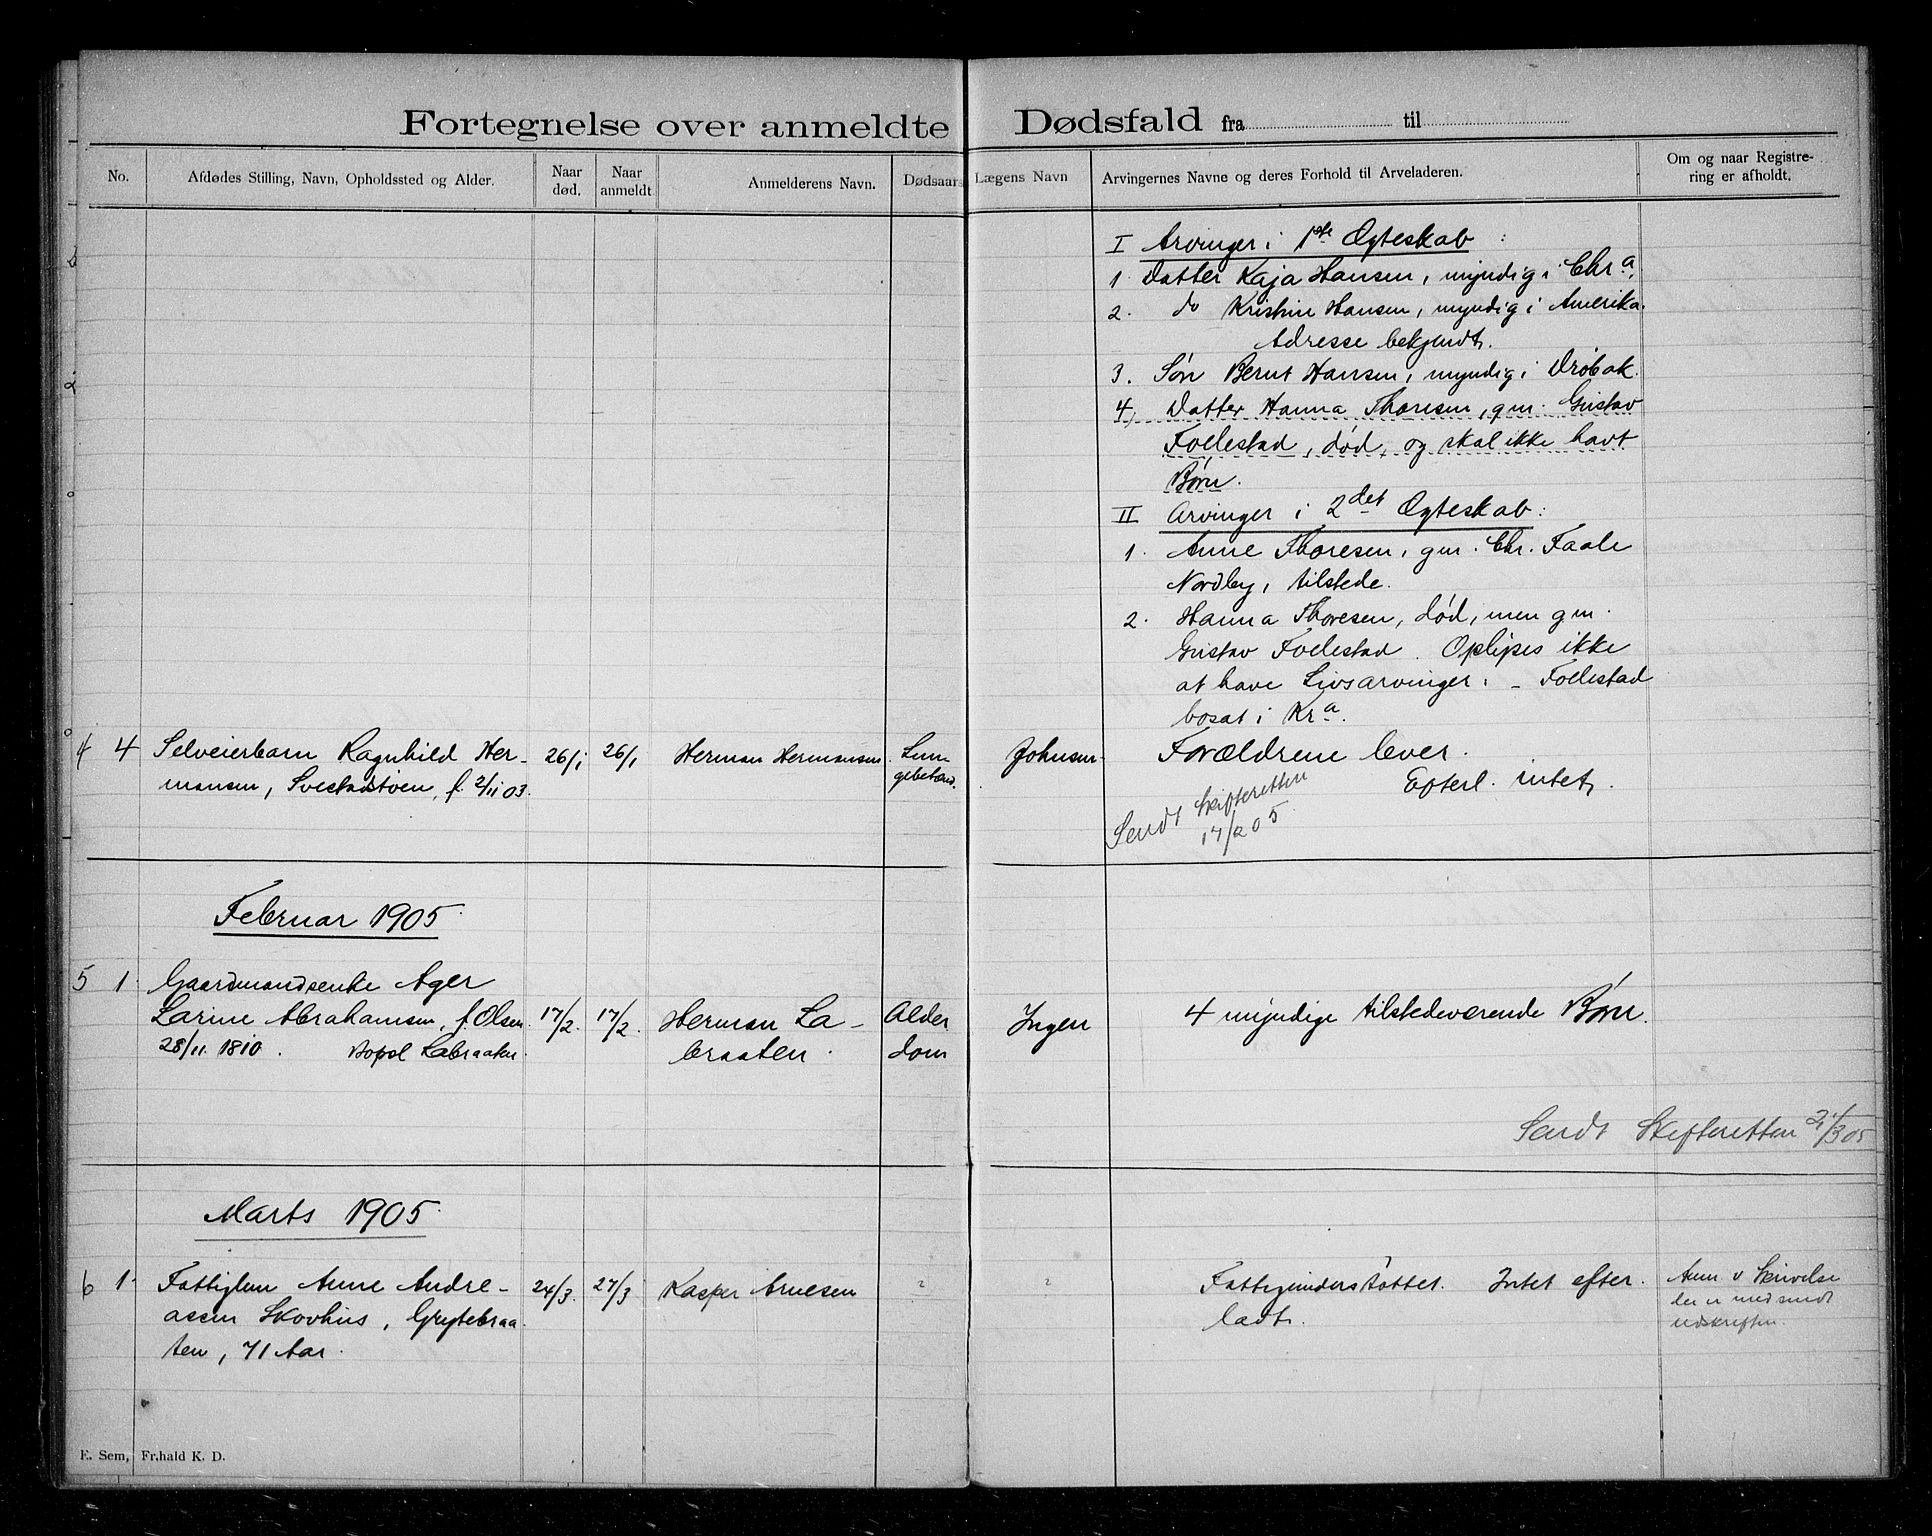 Fortegnelse over anmeldte Dødsfald fra til
No.
Afdødes Stilling, Navn, Opholdssted og Alder.
Naar død.
Naar anmeldt.
Anmelderens Navn.
Dødsaars
Lægens Navn
Arvingernes Navne og deres Forhold til Arveladeren.
Om og naar Registre-
ring er afholdt.
I Arvinger i 1ste Ægteskab :
1. Datter Kaja Hansen, myndig i Chr.a.
2. do Kristine Hansen, myndig i Amerika.
Adresse bekjendt.
3. Søn Bernt Hansen, myndig i Drøbak.
4, Datter Hanna Thoresen, gm. Gustav
Follestad, død, og skal ikke havt
Børn.
II Arvinger i 2det Ægteskab :
1. Anne Thoresen, gm. Chr. Faale
Nordby, tilstede.
2. Hanna Thoresen, død, men gm.
Gustav Follestad. Oplyses ikke
at have Livsarvinger. – Follestad
bosat i Kr.a.
4 4 Selveierbarn Ragnhild Her- 26/1 26/1 Herman Hermansen Lun- Johnsen Forældrene lever.
mansen, Svestadtoen, f. 2/11 03. gebetænd. Efterl. intet.
Sendt Skifteretten
17/2 05
Februar 1905
5 1. Gaardmandsenke Ager
Larine Abrahamsen, f. Olsen 17/2. 17/2. Herman La- Alder Ingen 4 myndige tilstedeværende Børn.
28/11. 1810. Bopæl Labraaten. braaten. dom
Sendt Skifteretten 21/3 05
Marts 1905.
6 1. Fattiglem Anne Andre- 24/3. 27/3 Kasper Arnesen " " Fattigunderstøttet. Intet efter-
assen Skovhus, Grytebraa- ladt.
ten, 71 Aar.
Anm. v Skrivelse
der er medsendt
udskriften.
E. Sem, Fr.hald K. D.